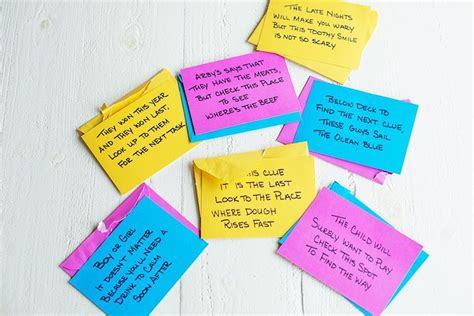 The Late Nights
Will make you wary
But this toothy smile
is not so scary
Arby's says that
they have the meats,
But check this place
to see
Where's the beef
They won this year
and they won last,
look up to them
for the next task
Below deck to
find the next clue,
These guys sail
the ocean blue
This clue
it is the last
Look to the place
where dough
rises fast
The child will
surely want to play
Check this spot
to find the way
Boy or girl
it doesn't matter
Because you'll need a
drink to calm
soon after